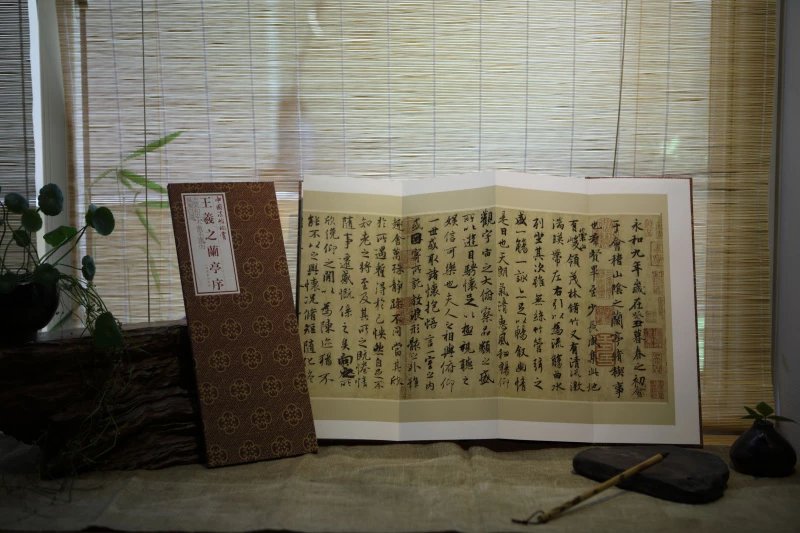 王羲之蘭亭序
永和九年歲在癸丑暮春之初會
于會稽山陰之蘭亭脩稧事
也羣賢畢至少長咸集此地
有崇山峻領茂林脩竹又有清流激
湍暎帶左右引以為流觴曲水
列坐其次雖無絲竹管弦之
盛一觴一詠亦足以暢敘幽情
是日也天朗氣清惠風和暢仰
觀宇宙之大俯察品類之盛
所以遊目騁懷足以極視聽之
娛信可樂也夫人之相與俯仰
一世或取諸懷抱悟言一室之內
或因寄所託放浪形骸之外雖
趣舍萬殊靜躁不同當其欣
於所遇蹔得於己怏然自足不
知老之將至及其所之既惓情
隨事遷感慨係之矣向之所
欣俛仰之閒以為陳迹猶不
能不以之興懷況脩短隨化終